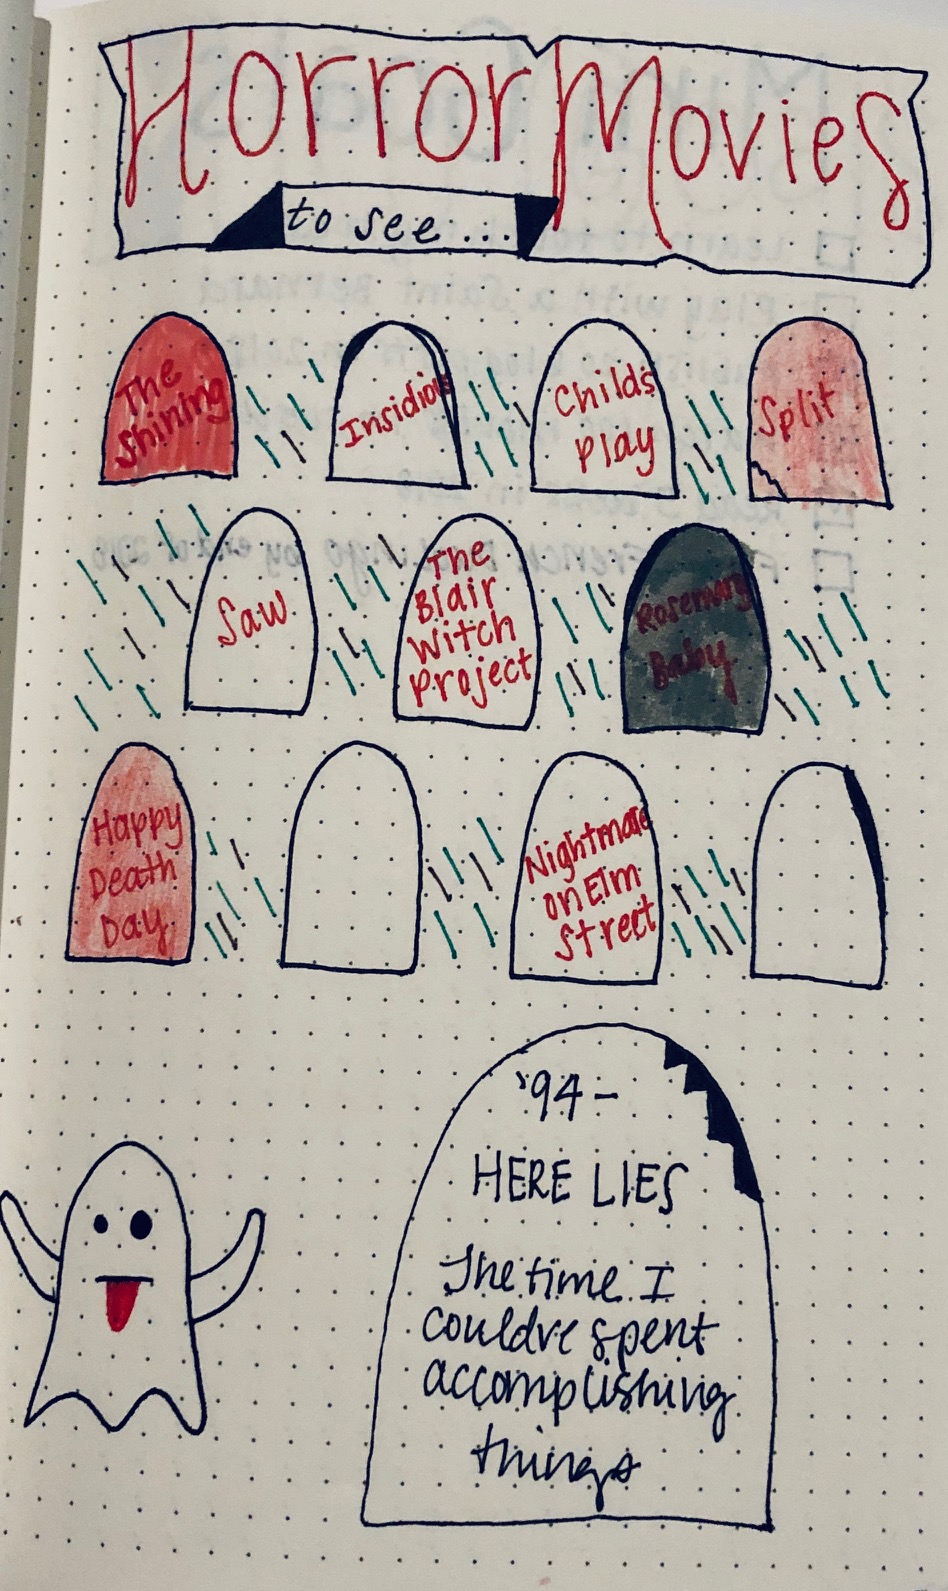 Horror Movies
to see...
The
Shining
Insidious
Childs
Play
Split
Saw
The
Blair
Witch
Project
Rosemary
Baby
Happy
Death
Day
Nightmare
on Elm
Street
'94-
HERE LIES
The time I
couldve spent
accomplishing
things